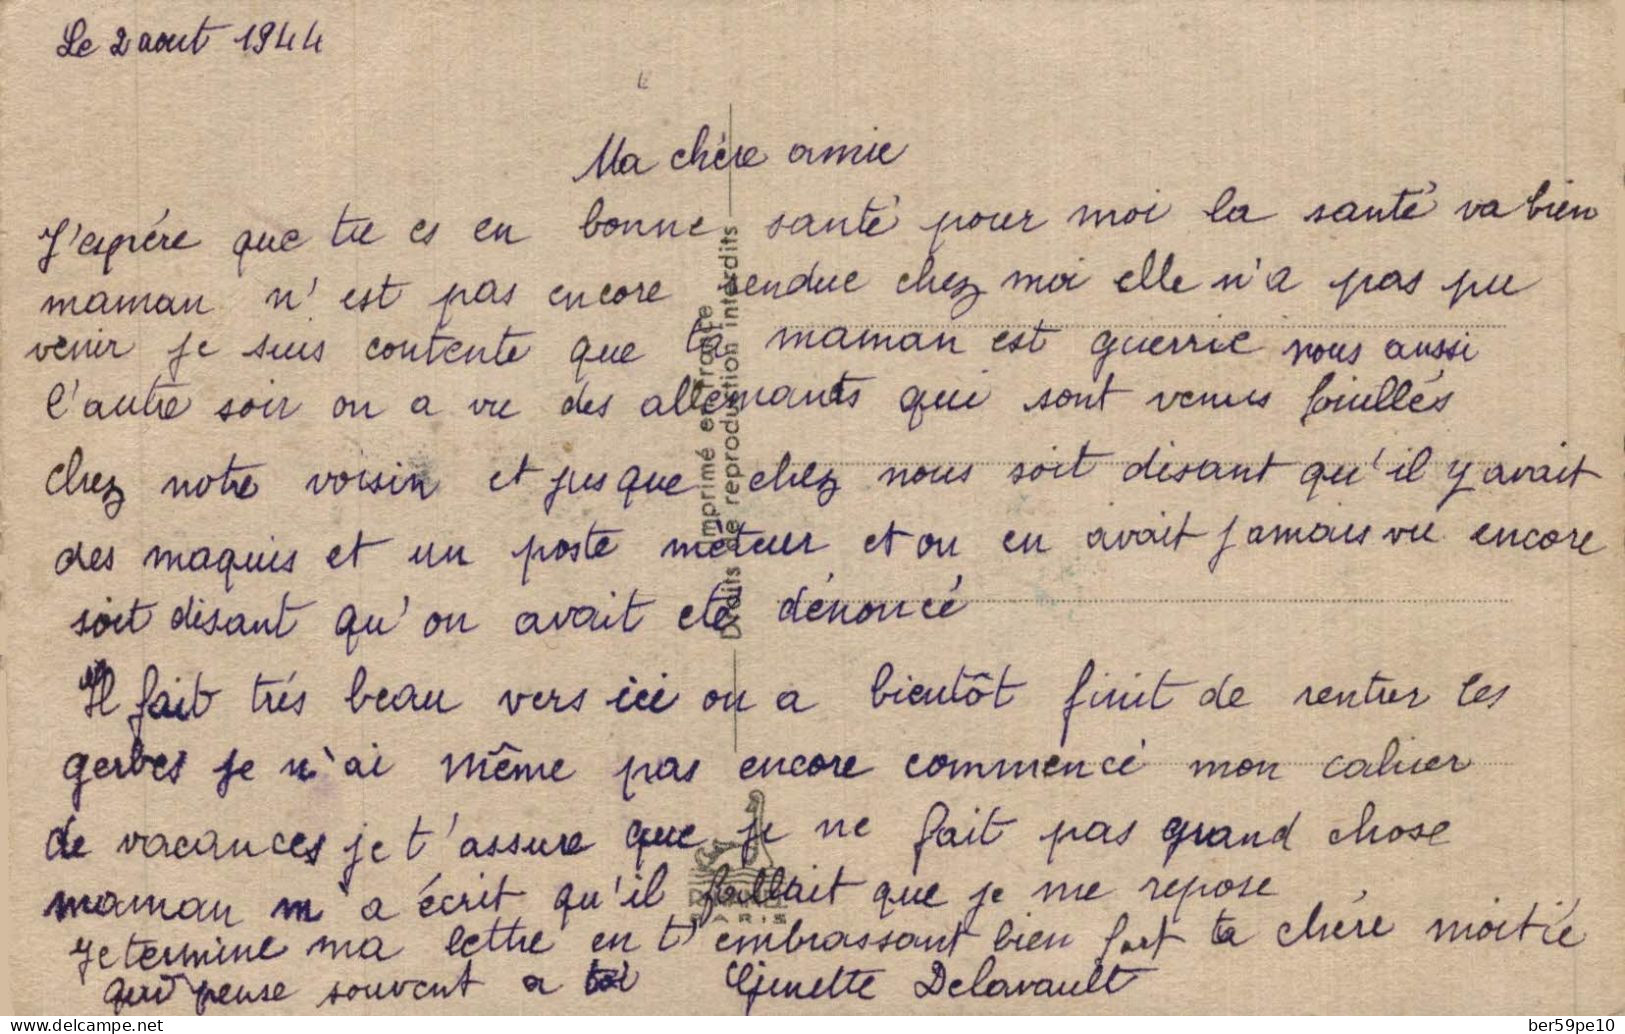 Le 2 aout 1944
Ma chère amie
J'espére que tu es en bonne santé pour moi la santé va bien
maman n'est pas encore vendue chez moi elle n'a pas pu
venir je suis contente que ta maman est guerrie nous aussi
l'autre soir on a vu des allemants qui sont venus fouillés
chez notre voisin et jusque chez nous soit disant qu'il y avait
des maquis et un poste méteur et on en avait jamais vu encore
soit disant qu'on avait eté dénoncé
Il fait trés beau vers ici on a bientôt finit de rentrer les
gerbes je n'ai même pas encore commencé mon cahier
de vacances je t'assure que je ne fait pas grand chose
maman m'a écrit qu'il fallait que je me repose
Je termine ma lettre en t'embrassant bien fort ta chére moitié
qui pense souvent a toi Ginette Delavault
Imprimé en France
Droits de reproduction interdits
PARIS
www.delcampe.net
ber59pe10